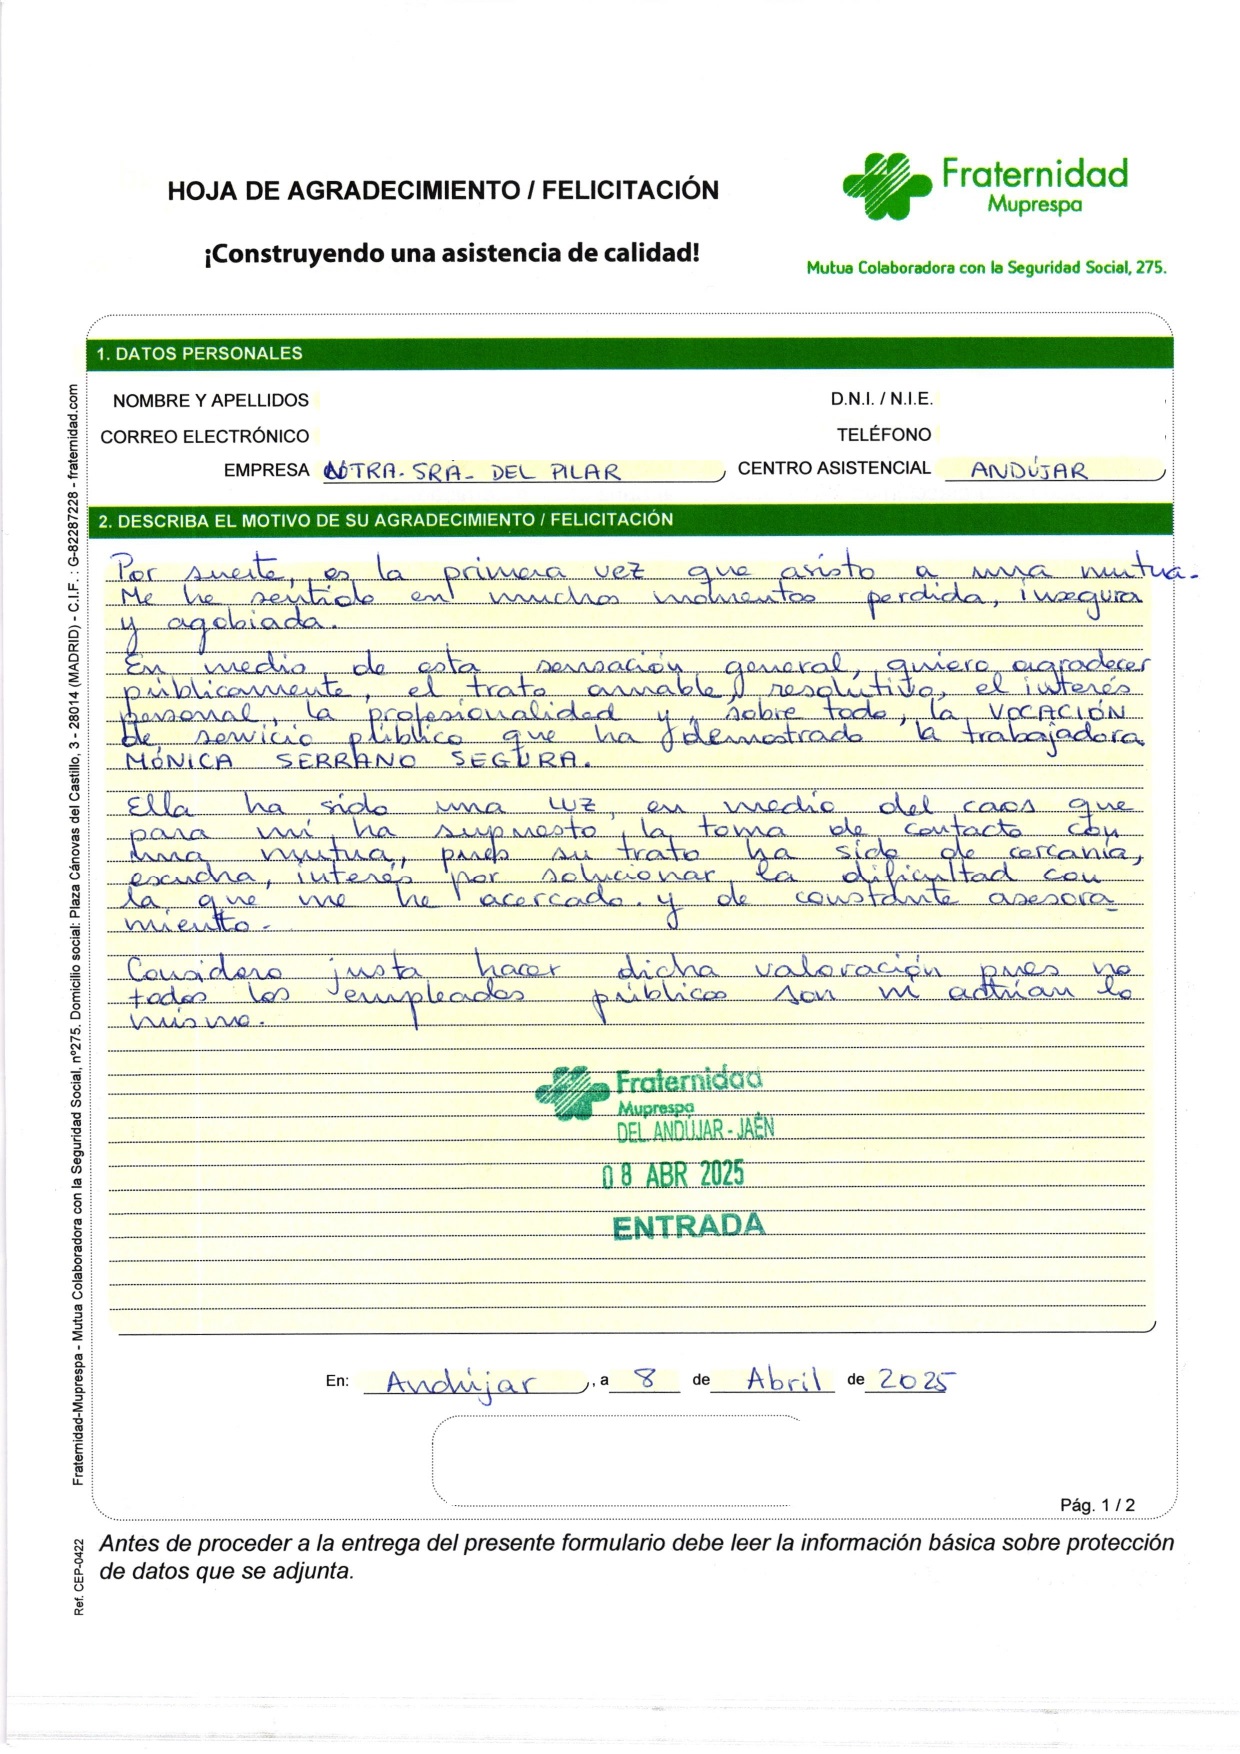 HOJA DE AGRADECIMIENTO / FELICITACIÓN
¡Construyendo una asistencia de calidad!
Fraternidad
Muprespa
Mutua Colaboradora con la Seguridad Social, 275.
1. DATOS PERSONALES
NOMBRE Y APELLIDOS
D.N.I. / N.I.E.
CORREO ELECTRÓNICO
TELÉFONO
EMPRESA NTRA. SRA. DEL PILAR
CENTRO ASISTENCIAL ANDÚJAR
2. DESCRIBA EL MOTIVO DE SU AGRADECIMIENTO / FELICITACIÓN
Por suerte, es la primera vez que asisto a una mutua.
Me he sentido en muchos momentos perdida, insegura
y agobiada.
En medio de esta sensación general, quiero agradecer
públicamente, el trato amable, resolutivo, el interés
personal, la profesionalidad y, sobre todo, la VOCACIÓN
de servicio público que ha demostrado la trabajadora
MÓNICA SERRANO SEGURA.
Ella ha sido una luz, en medio del caos que
para mí ha supuesto, la toma de contacto con
una mutua, pues su trato ha sido de cercanía,
escucha, interés por solucionar la dificultad con
la que me he acercado. y de constante asesora_
miento.
Considero justa hacer dicha valoración pues no
todos los empleados públicos son ni actúan lo
mismo.
Fraternidad
Muprespa
DEL ANDÚJAR - JAÉN
08 ABR 2025
ENTRADA
En: Andújar, a 8 de Abril de 2025
Pág. 1 / 2
Antes de proceder a la entrega del presente formulario debe leer la información básica sobre protección
de datos que se adjunta.
Fraternidad-Muprespa - Mutua Colaboradora con la Seguridad Social, nº275. Domicilio social: Plaza Cánovas del Castillo, 3 - 28014 (MADRID) - C.I.F. : G-82287228 - fraternidad.com
Ref. CEP-0422